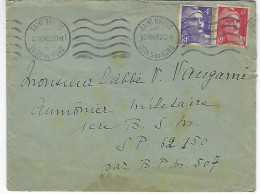 SAINT BRIEUC
Monsieur l'abbé V. Vaugarni
Aumônier Militaire
1ere B. S. M
S.P 62.150
par B.P.M. 507